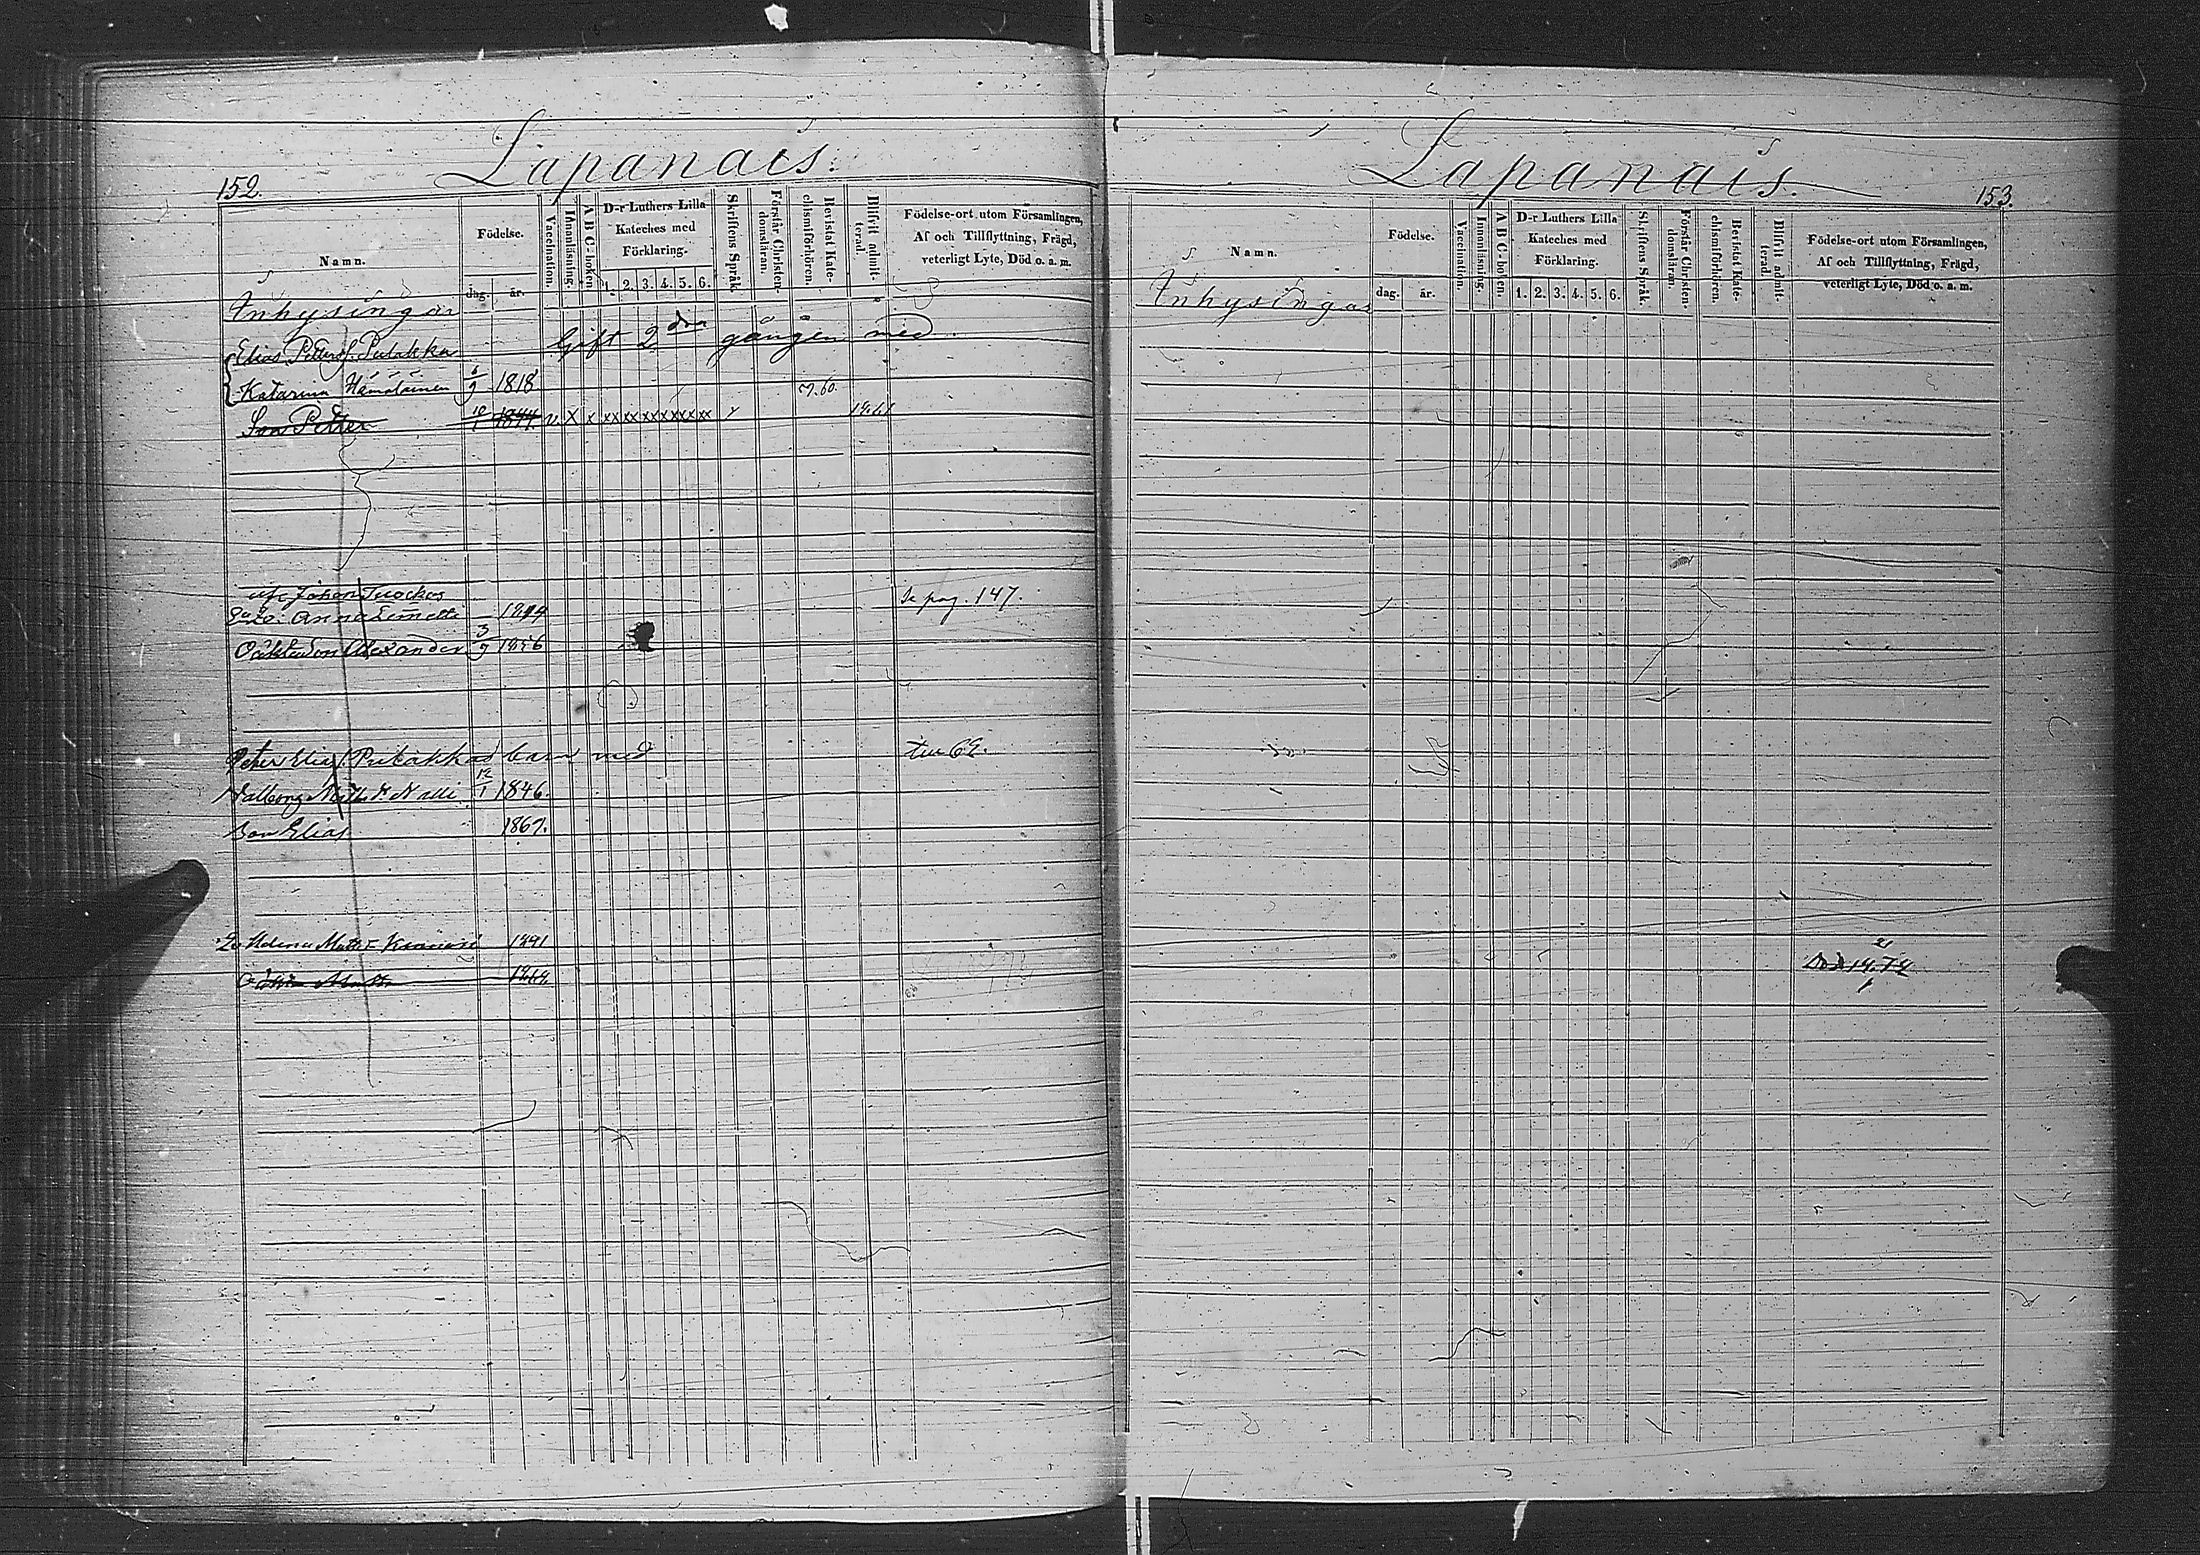 152.
Lapanais.
Namn.
Födelse.
dag.
år.
Vaccination.
Innanläsning.
A B C-boken.
D-r Luthers Lilla
Kateches med
Förklaring.
1. 2. 3. 4. 5. 6.
Skriftens Språk.
Förstår Christen-
domsläran.
Bevistat Kate-
chismiförhören.
Blifvit admit-
terad.
Födelse-ort utom Församlingen,
Af och Tillflyttning, Frägd,
veterligt Lyte, Död o. a. m.
Inhysingar
Elias Petters. Pulakka Gift 2 dra gången med
Katarina Hämäläinen 6/9 1818 59.60.
Son Petter 1844 v. X x xx xx xx xx xx xx
Johan Se pag. 147.
Anna
Oäkta Son Alexander 3/9 1856
Peter Elias Pulakkas barn med
Walborg Matts D. Nalli 12/1 1846.
Son Elias 1867.
Helena Matts
153.
Lapanais.
Namn.
Födelse.
dag.
år.
Vaccination.
Innanläsning.
A B C-boken.
D-r Luthers Lilla
Kateches med
Förklaring.
1. 2. 3. 4. 5. 6.
Skriftens Språk.
Förstår Christen-
domsläran.
Bevistat Kate-
chismiförhören.
Blifvit admit-
terad.
Födelse-ort utom Församlingen,
Af och Tillflyttning, Frägd,
veterligt Lyte, Död o. a. m.
Inhysingar
Död